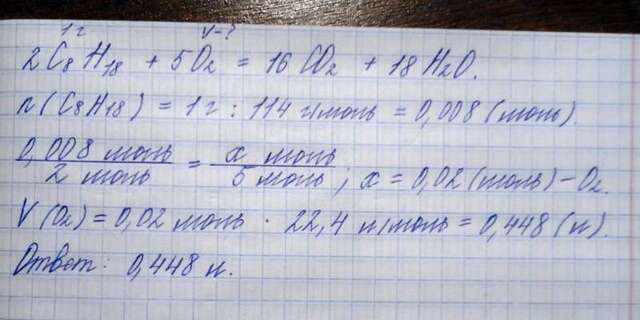 1г V-?
2C₈H₁₈ + 5O₂ = 16CO₂ + 18H₂O.
n(C₈H₁₈) = 1г : 114 г/моль = 0,008 (моль).
0,008 моль / 2 моль = x моль / 5 моль ; x = 0,02 (моль) – O₂.
V(O₂) = 0,02 моль · 22,4 л/моль = 0,448 (л).
Ответ: 0,448 л.